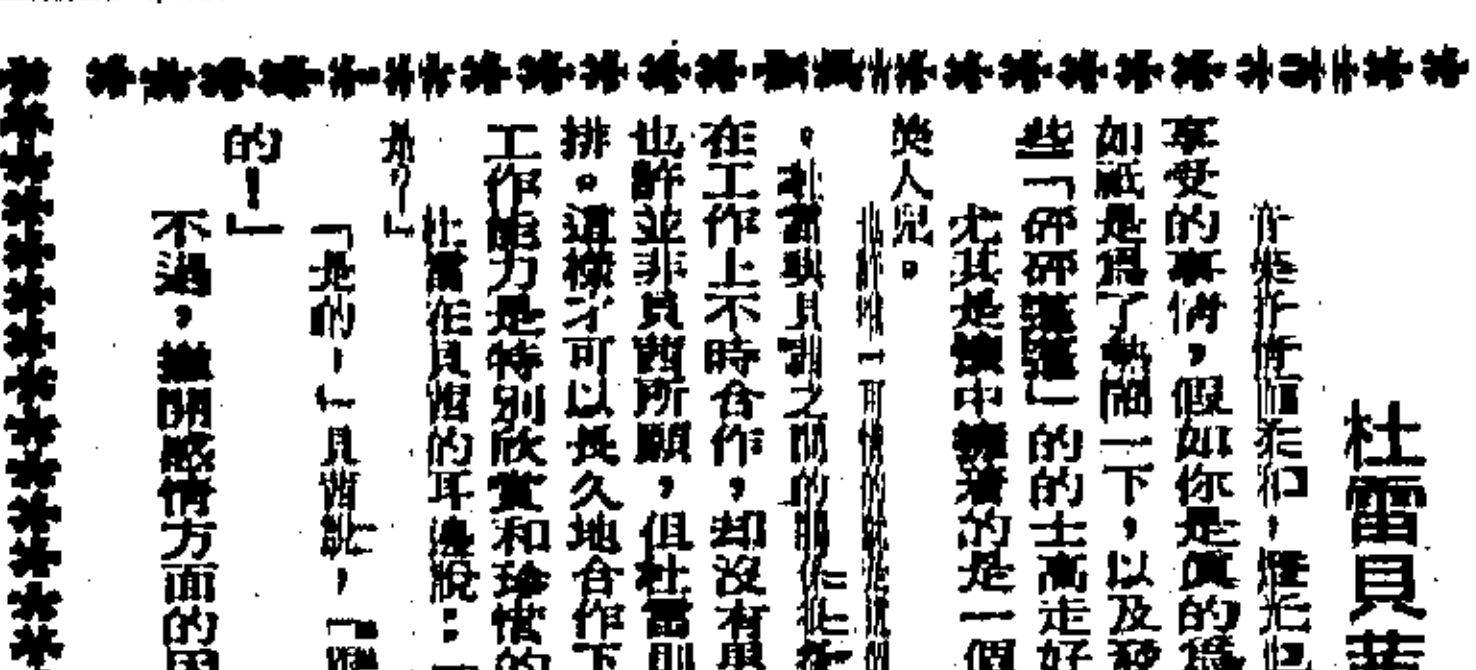 杜雷貝茜
音樂抒情而柔和，燈光也
享受的事情，假如你是真的為
如祇是為了熱鬧一下，以及
些「砰砰」的的士高走好
尤其是懷中擁着的是一個
美人兒。
也許唯一可惜的就是
。杜雷與貝茜之間的關係
在工作上不時合作，却沒有
也許並非貝茜所願，但杜雷則
排。這樣才可以長久地合作下
工作能力是特別欣賞和珍惜的
杜雷在貝茜的耳邊說：「
是？」
「是的，」貝茜說，「
的！」
不過，撇開感情方面的因